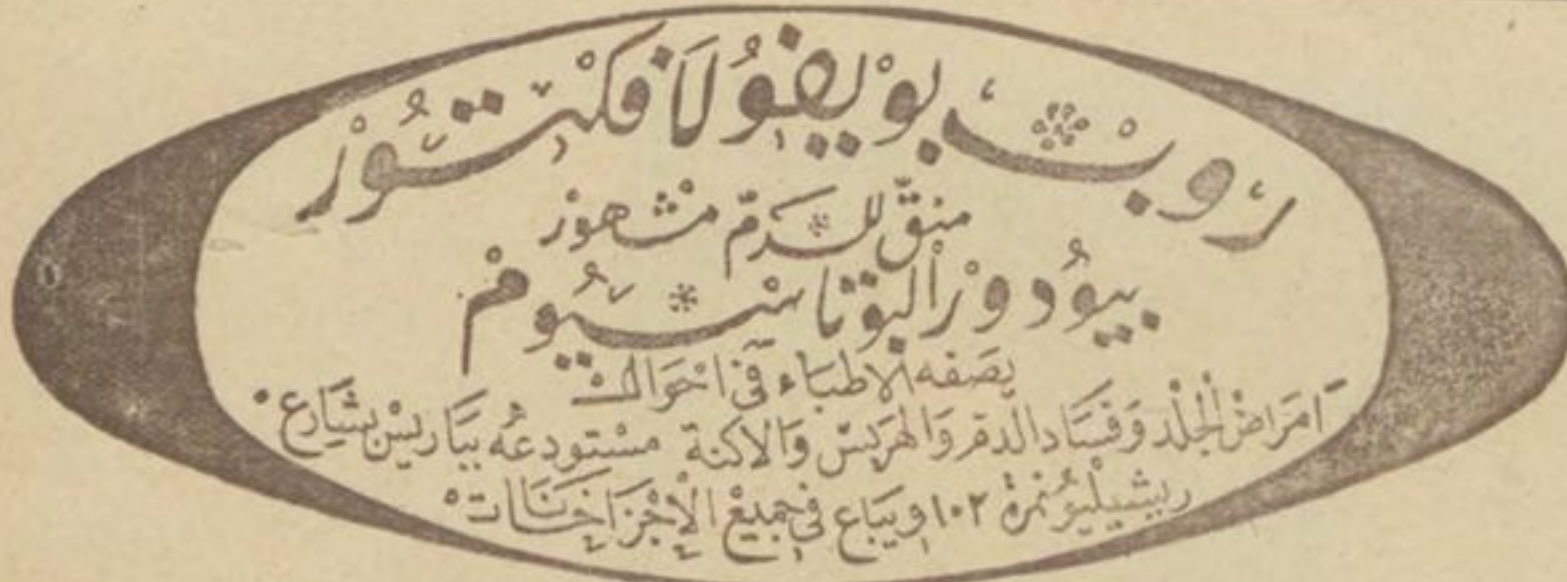 روب بويفو لافكتور
منقّ للدمّ مشهور
بيودور البوتاسيوم
يصفه الاطباء في احوال
امراض الجلد وفساد الدم والهربس والاكنة مستودعه بباريس بشارع
ريشيليو نمرة ١٠٢ ويباع في جميع الاجزاخانات